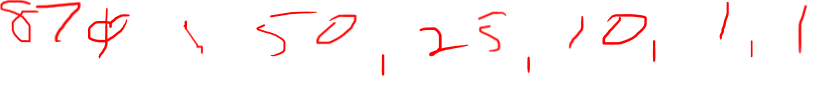 87¢ \ 50, 25, 10, 1, 1